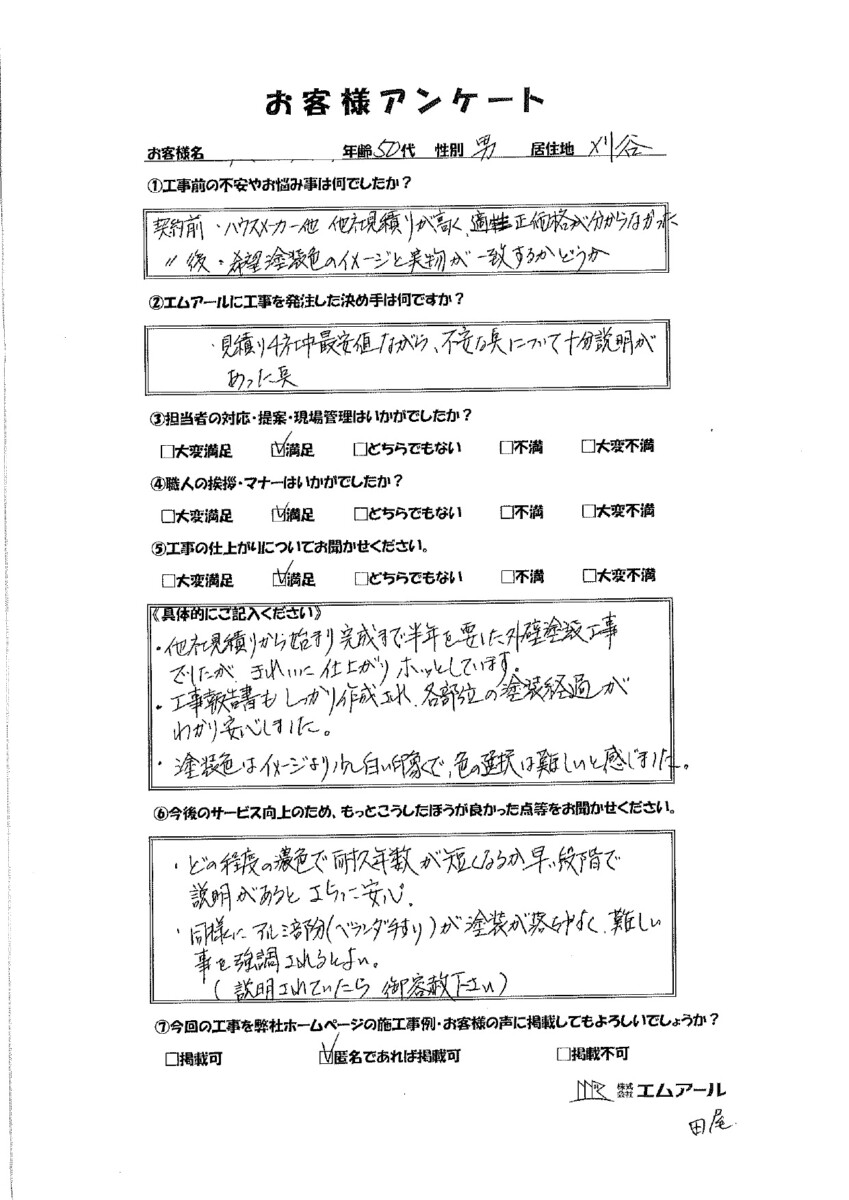 お客様アンケート
お客様名 年齢50代 性別 男 居住地 刈谷
①工事前の不安やお悩み事は何でしたか？
契約前・ハウスメーカー他 他社見積りが高く、適正価格が分からなかった
〃 後・希望塗装色のイメージと実物が一致するかどうか
②エムアールに工事を発注した決め手は何ですか？
・見積り4社中最安値ながら、不安な点について十分説明が
あった点
③担当者の対応・提案・現場管理はいかがでしたか？
□大変満足 ☑満足 □どちらでもない □不満 □大変不満
④職人の挨拶・マナーはいかがでしたか？
□大変満足 ☑満足 □どちらでもない □不満 □大変不満
⑤工事の仕上がりについてお聞かせください。
□大変満足 ☑満足 □どちらでもない □不満 □大変不満
《具体的にご記入ください》
・他社見積りから始まり完成まで半年を要した外壁塗装工事
でしたが きれいに仕上がりホッとしています。
・工事報告書もしっかり作成され、各部位の塗装経過が
わかり安心しました。
・塗装色はイメージより少し白い印象で、色の選択は難しいと感じました。
⑥今後のサービス向上のため、もっとこうしたほうが良かった点等をお聞かせください。
・どの程度の濃色で耐久年数が短くなるか早い段階で
説明があるとさらに安心。
・同様にアルミ部分(ベランダ手すり)が塗装が落ちやすく、難しい
事を強調されるとよい。
(説明されていたら 御容赦下さい)
⑦今回の工事を弊社ホームページの施工事例・お客様の声に掲載してもよろしいでしょうか？
□掲載可 ☑匿名であれば掲載可 □掲載不可
MR 株式会社エムアール
田尾